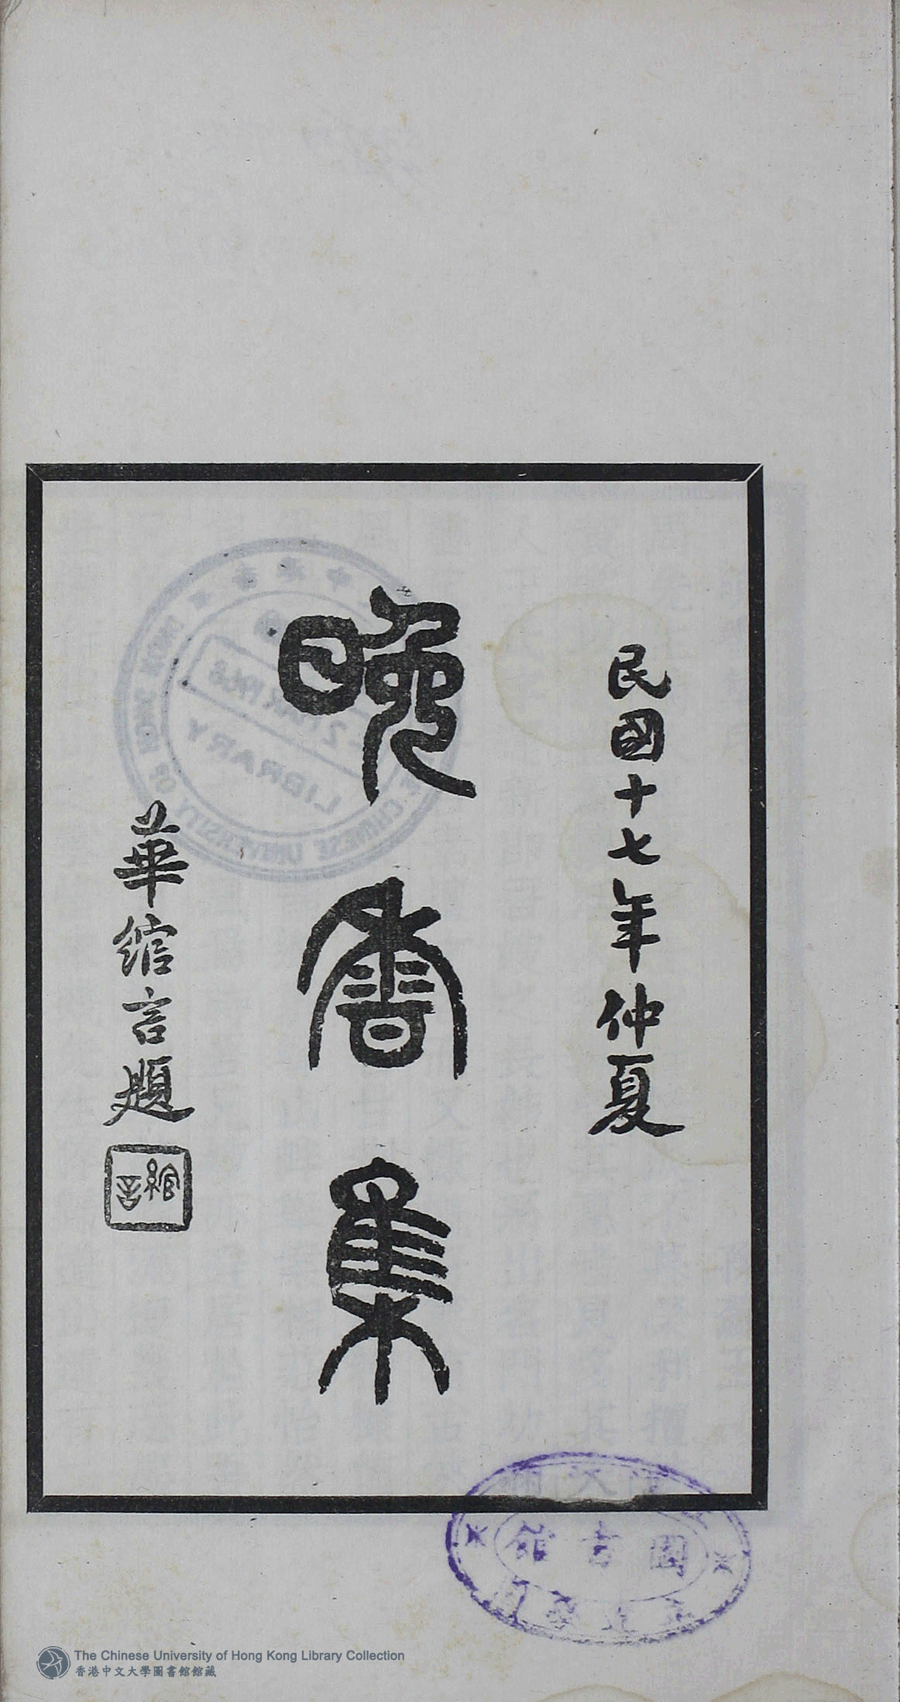 民國十七年仲夏
晚香集
華綰言題
綰言
圖書館
LIBRARY
The Chinese University of Hong Kong Library Collection
香港中文大學圖書館館藏